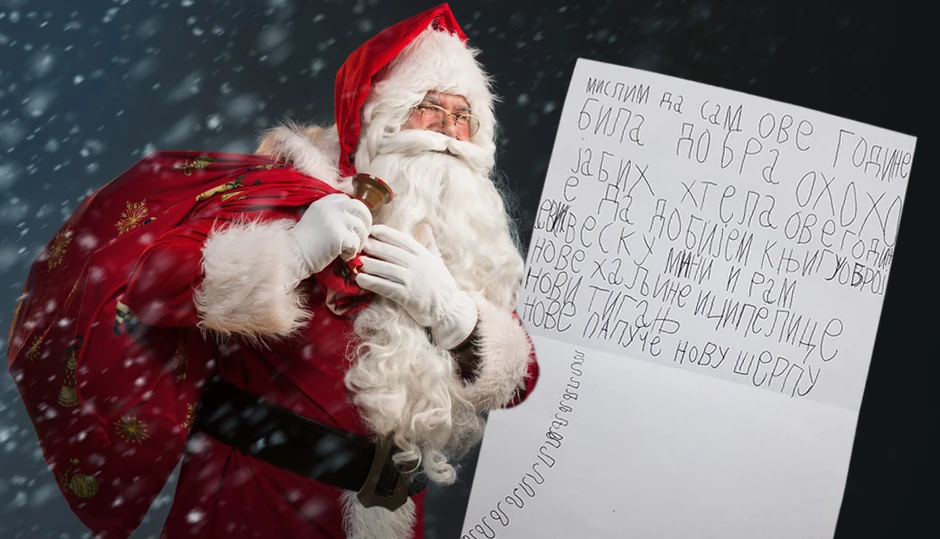 мислим да сам ове године
била добра охохо
јабих хтела ове годин
е да добијем књигу
свеску мини и рам
нове хаљине иципелице
нови тигањ
нове папуче нову шерпу